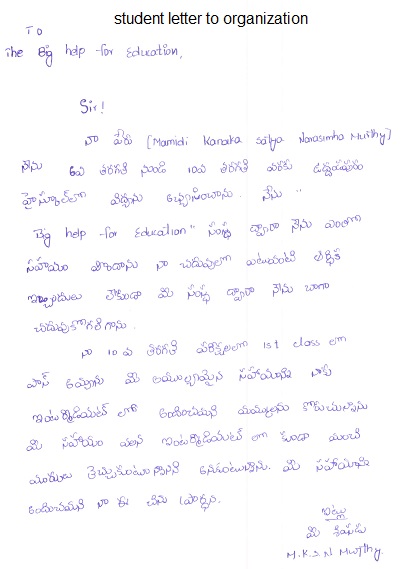 student letter to organization
TO
The Big help for Education,
Sir!
నా పేరు (Mamidi Kanaka Satya Narasimha Murthy)
నేను 6వ తరగతి నుండి 10వ తరగతి వరకు
హైస్కూల్‌లో విద్యను అభ్యసించాను. నేను "
Big help for Education" సంస్థ ద్వారా నేను ఎంతగానో
సహాయం పొందాను నా చదువులో ఎటువంటి ఆర్థిక
ఇబ్బందులు లేకుండా మీ సంస్థ ద్వారా నేను బాగా
చదువుకోగలిగాను.
నా 10వ తరగతి పరీక్షలలో 1st class లో
పాస్ అయ్యాను మీ అమూల్యమైన సహాయాన్ని నాకు
ఇంటర్మీడియట్ లో అందించమని మిమ్మలను కోరుచున్నాను
మీ సహాయం వలన ఇంటర్మీడియట్ లో కూడా మంచి
మార్కులు తెచ్చుకుంటానని అనుకుంటున్నాను. మీ సహాయాన్ని
అందించమని నా ఈ చిన్న ప్రార్థన.
ఇట్లు
మీ
M.K.S.N Murthy.